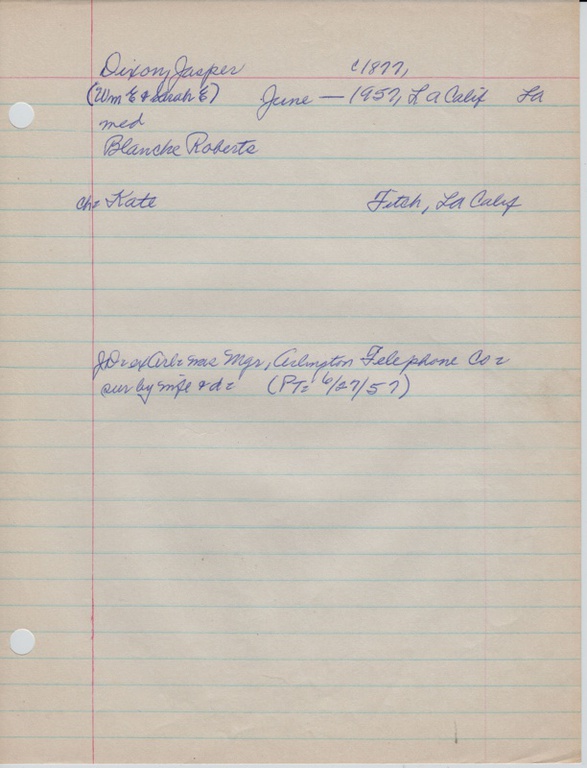 Dixon, Jasper c1877,
(Wm E & Sarah E) June — 1957, LA Calif LA
med
Blanche Roberts
ch: Kate Fitch, LA Calif
JD: ex Arl: was Mgr, Arlington Telephone Co:
sur by wife & d: (PT: 6/27/57)